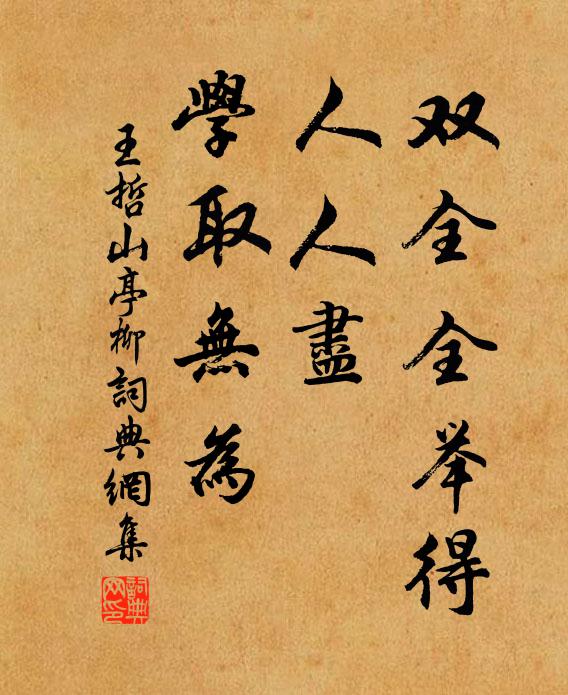 双全全举得
人人盡
學取無為
王哲山亭柳詞典網集
詞典网印